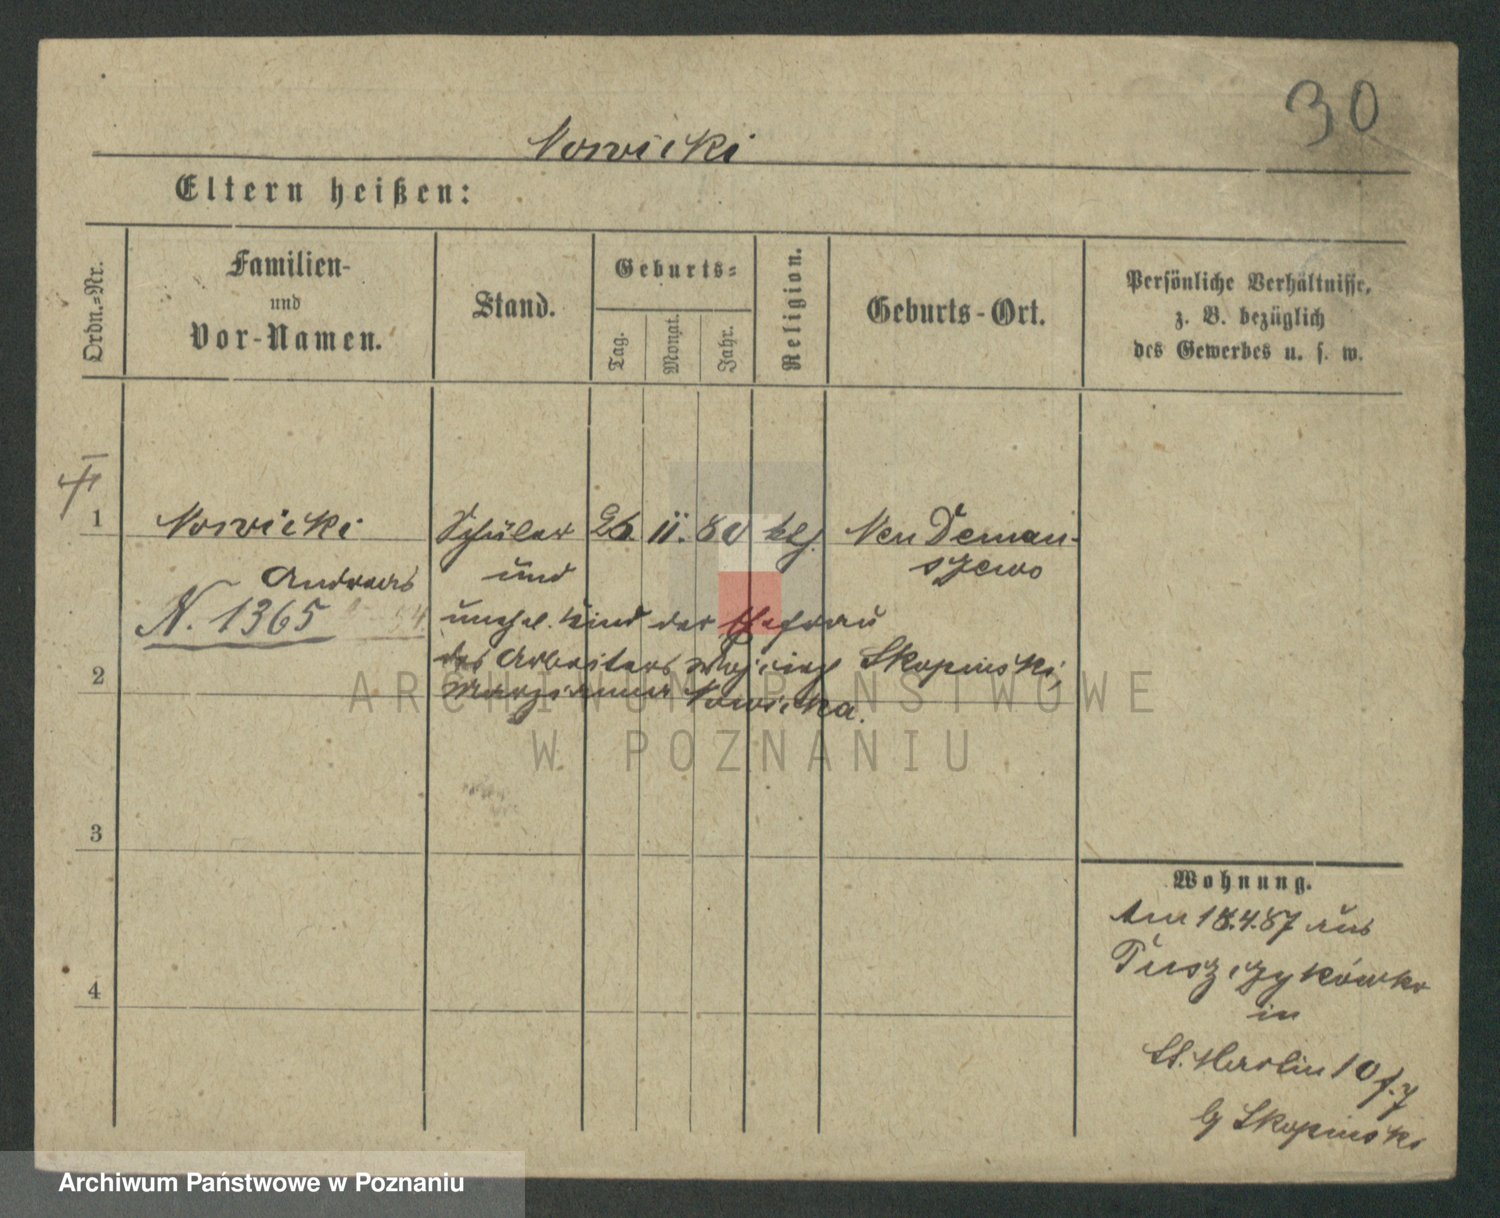 30
Nowicki
Eltern heißen:
Ordn.-Nr.
Familien-
und
Vor-Namen.
Stand.
Geburts-
Tag.
Monat.
Jahr.
Religion.
Geburts-Ort.
Persönliche Verhältnisse,
z. B. bezüglich
des Gewerbes u. s. w.
1
Nowicki Schüler 26 11. 80 ktl. Neu Deman-
Andreas und szewo
N. 1365 unehel. Kind der Ehefrau
des Arbeiters Wojciech Skopinski,
2
Maryanna Nowicka.
ARCHIWUM PAŃSTWOWE
W POZNANIU
3
Wohnung.
Am 18.4.87 aus
4
in
St. Martin 10
Skopinski
Archiwum Państwowe w Poznaniu